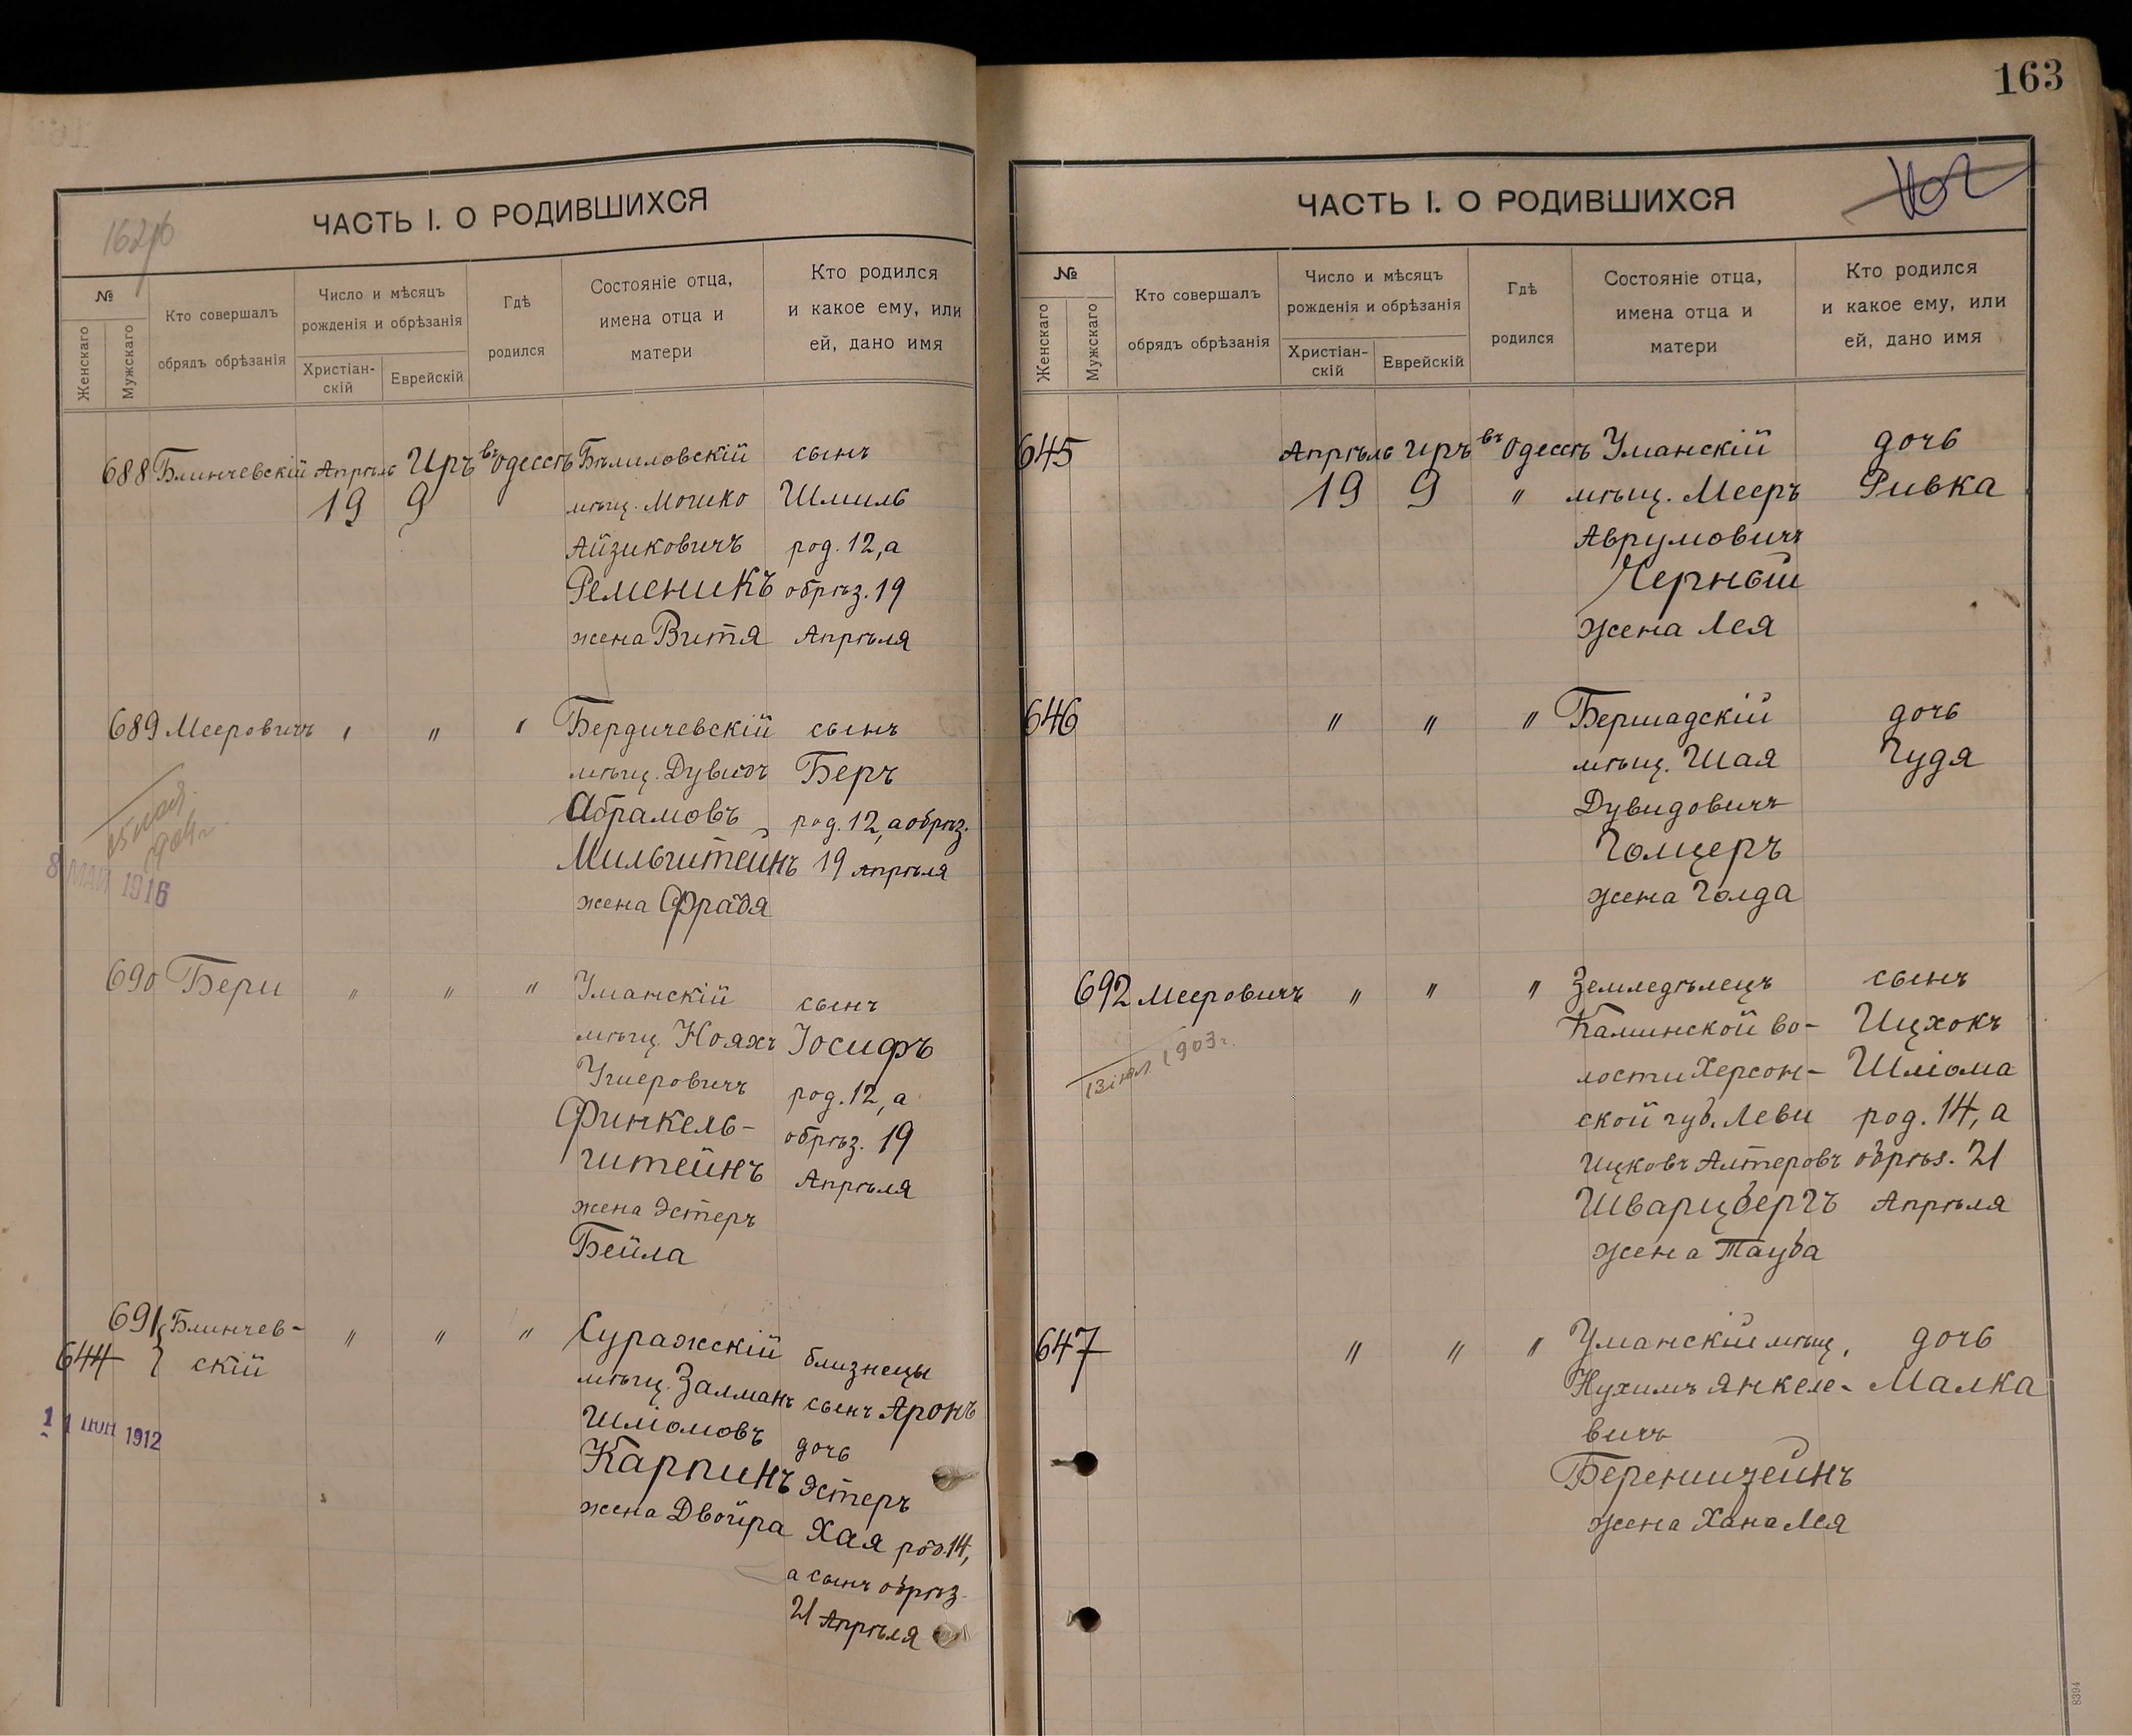 163
ЧАСТЬ I. О РОДИВШИХСЯ
162/б
№
Женскаго
Мужскаго
Кто совершалъ
обрядъ обрѣзанія
Число и мѣсяцъ
рожденія и обрѣзанія
Христіан-
скій
Еврейскій
Гдѣ
родился
Состояніе отца,
имена отца и
матери
Кто родился
и какое ему, или
ей, дано имя
688 Блинчевскій Апрѣль Иръ въ Одессѣ Бѣлиловскій сынъ
19 9 мѣщ. Мошко Шмиль
Айзиковичъ род. 12, а
Ременикъ обрѣз. 19
жена Витя Апрѣля
689 Мееровичъ " " " Бердичевскій сынъ
мѣщ. Дувидъ Беръ
Абрамовъ род. 12, а обрѣз.
Мильштейнъ 19 Апрѣля
жена Фрадя
15 мая
1904 г.
8 МАЙ 1916
690 Бери " " " Уманскій сынъ
мѣщ. Нояхъ Іосифъ
Ушеровичъ род. 12, а
Финкель- обрѣз. 19
штейнъ Апрѣля
жена Эстеръ
Бейла
691 } Блинчев- " " " Суражскій близнецы
644 } скій мѣщ. Залманъ сынъ Аронъ
Шліомовъ дочь
Карпинъ Эстеръ
жена Двойра Хая род. 14,
а сынъ обрѣз.
21 Апрѣля
1 1 ІЮН 1912
ЧАСТЬ I. О РОДИВШИХСЯ
№
Женскаго
Мужскаго
Кто совершалъ
обрядъ обрѣзанія
Число и мѣсяцъ
рожденія и обрѣзанія
Христіан-
скій
Еврейскій
Гдѣ
родился
Состояніе отца,
имена отца и
матери
Кто родился
и какое ему, или
ей, дано имя
645 Апрѣль Иръ въ Одессѣ Уманскій дочь
19 9 " мѣщ. Мееръ Ривка
Аврумовичъ
Черный
жена Лея
646 " " " Бершадскій дочь
мѣщ. Шая Гудя
Дувидовичъ
Голцеръ
жена Голда
692 Мееровичъ " " " Земледѣлецъ сынъ
Каминской во- Ицхокъ
лости Херсон- Шліома
ской губ. Леви род. 14, а
Ицковъ Алтеровъ обрѣз. 21
Шварцбергъ Апрѣля
жена Тауба
13 іюл 1903 г.
647 " " " Уманскій мѣщ. дочь
Нухимъ Янкеле- Малка
вичъ
Беренштейнъ
жена Хана Лея
8394